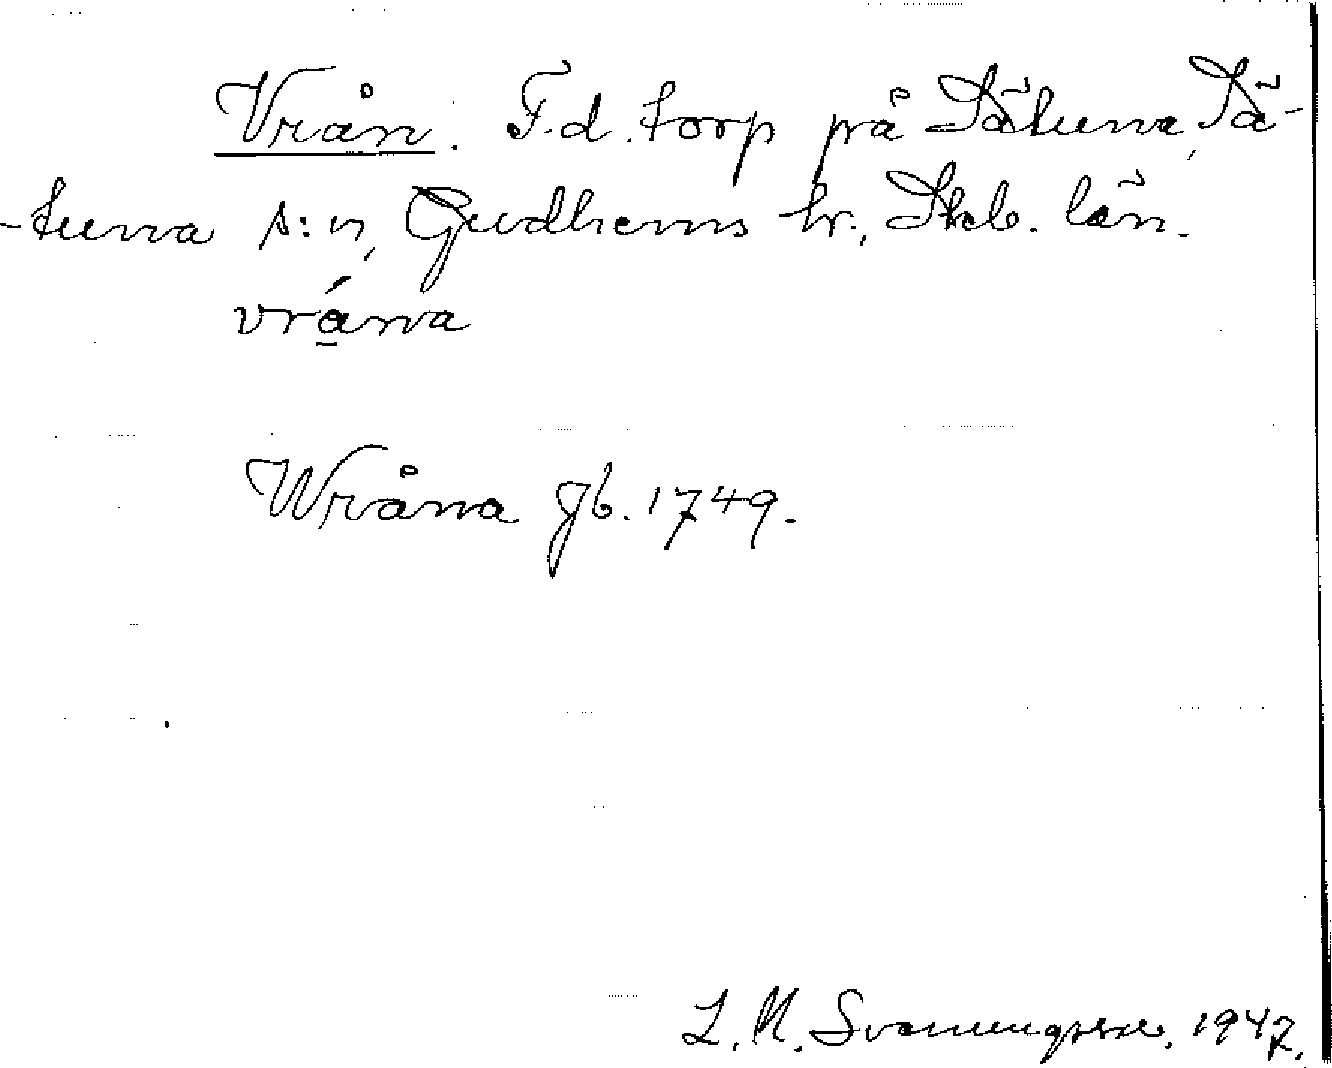 Vrån. F.d. torp på Sätuna, Sä-
-tuna s:n, Gudhems hr., Skb. län.
vrǻna
Wråna Jb. 1749.
L. M. Svenungsson. 1947.